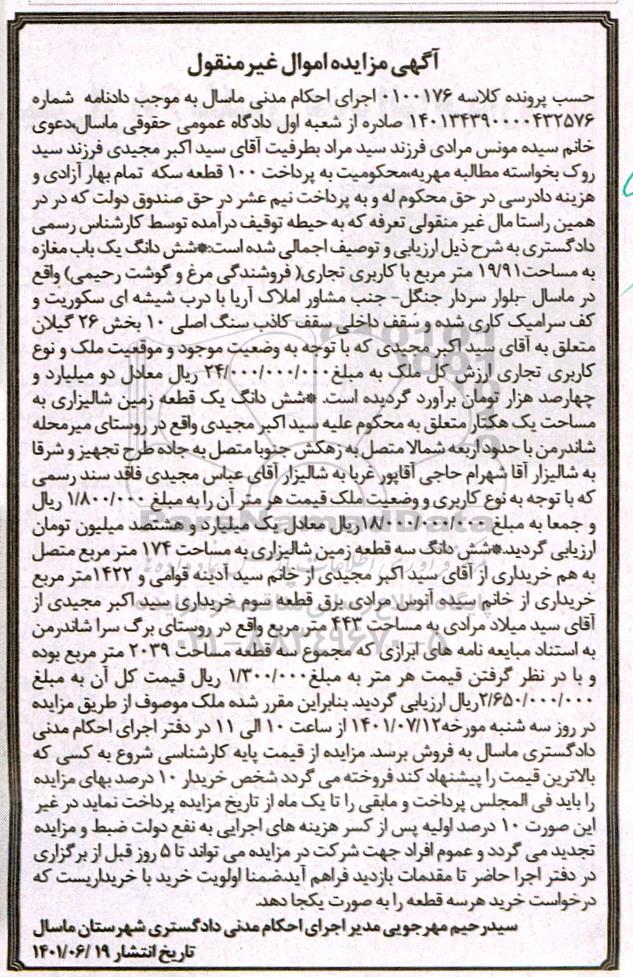 آگهی مزایده اموال غیر منقول
حسب پرونده کلاسه ۰۱۰۰۱۷۶ اجرای احکام مدنی ماسال به موجب دادنامه شماره
۱۴۰۱۳۴۳۹۰۰۰۰۴۳۲۵۷۶ صادره از شعبه اول دادگاه عمومی حقوقی ماسال،دعوی
خانم سیده مونس مرادی فرزند سید مراد بطرفیت آقای سید اکبر مجیدی فرزند سید
روک بخواسته مطالبه مهریه،محکومیت به پرداخت ۱۰۰ قطعه سکه تمام بهار آزادی و
هزینه دادرسی در حق محکوم له و به پرداخت نیم عشر در حق صندوق دولت که در در
همین راستا مال غیر منقولی تعرفه که به حیطه توقیف درآمده توسط کارشناس رسمی
دادگستری به شرح ذیل ارزیابی و توصیف اجمالی شده است:*شش دانگ یک باب مغازه
به مساحت۱۹/۹۱ متر مربع با کاربری تجاری( فروشندگی مرغ و گوشت رحیمی) واقع
در ماسال -بلوار سردار جنگل- جنب مشاور املاک آریا با درب شیشه ای سکوریت و
کف سرامیک کاری شده و سقف داخلی سقف کاذب سنگ اصلی ۱۰ بخش ۲۶ گیلان
متعلق به آقای سید اکبر مجیدی که با توجه به وضعیت موجود و موقعیت ملک و نوع
کاربری تجاری ارزش کل ملک به مبلغ ۲۴/۰۰۰/۰۰۰/۰۰۰ ریال معادل دو میلیارد و
چهارصد هزار تومان برآورد گردیده است. *شش دانگ یک قطعه زمین شالیزاری به
مساحت یک هکتار متعلق به محکوم علیه سید اکبر مجیدی واقع در روستای میرمحله
شاندرمن با حدود اربعه شمالا متصل به زهکش جنوبا متصل به جاده طرح تجهیز و شرقا
به شالیزار آقا شهرام حاجی آقاپور غربا به شالیزار آقای عباس مجیدی فاقد سند رسمی
که با توجه به نوع کاربری و وضعیت ملک قیمت هر متر آن را به مبلغ ۱/۸۰۰/۰۰۰ ریال
و جمعا به مبلغ ۱۸/۰۰۰/۰۰۰/۰۰۰ریال معادل یک میلیارد و هشتصد میلیون تومان
ارزیابی گردید.*شش دانگ سه قطعه زمین شالیزاری به مساحت ۱۷۴ متر مربع متصل
به هم خریداری از آقای سید اکبر مجیدی از خانم سید آدینه قوامی و ۱۴۲۲متر مربع
خریداری از خانم سیده آنوس مرادی برق قطعه سوم خریداری سید اکبر مجیدی از
آقای سید میلاد مرادی به مساحت ۴۴۳ متر مربع واقع در روستای برگ سرا شاندرمن
به استناد مبایعه نامه های ابرازی که مجموع سه قطعه مساحت ۲۰۳۹ متر مربع بوده
و با در نظر گرفتن قیمت هر متر به مبلغ ۱/۳۰۰/۰۰۰ ریال قیمت کل آن به مبلغ
۲/۶۵۰/۰۰۰/۰۰۰ریال ارزیابی گردید. بنابراین مقرر شده ملک موصوف از طریق مزایده
در روز سه شنبه مورخه۱۴۰۱/۰۷/۱۲ از ساعت ۱۰ الی ۱۱ در دفتر اجرای احکام مدنی
دادگستری ماسال به فروش برسد. مزایده از قیمت پایه کارشناسی شروع به کسی که
بالاترین قیمت را پیشنهاد کند فروخته می گردد شخص خریدار ۱۰ درصد بهای مزایده
را باید فی المجلس پرداخت و مابقی را تا یک ماه از تاریخ مزایده پرداخت نماید در غیر
این صورت ۱۰ درصد اولیه پس از کسر هزینه های اجرایی به نفع دولت ضبط و مزایده
تجدید می گردد و عموم افراد جهت شرکت در مزایده می تواند تا ۵ روز قبل از برگزاری
در دفتر اجرا حاضر تا مقدمات بازدید فراهم آید.ضمنا اولویت خرید با خریداریست که
درخواست خرید هر سه قطعه را به صورت یکجا دهد.
سیدرحیم مهرجویی مدیر اجرای احکام مدنی دادگستری شهرستان ماسال
تاریخ انتشار ۱۹ /۱۴۰۱/۰۶